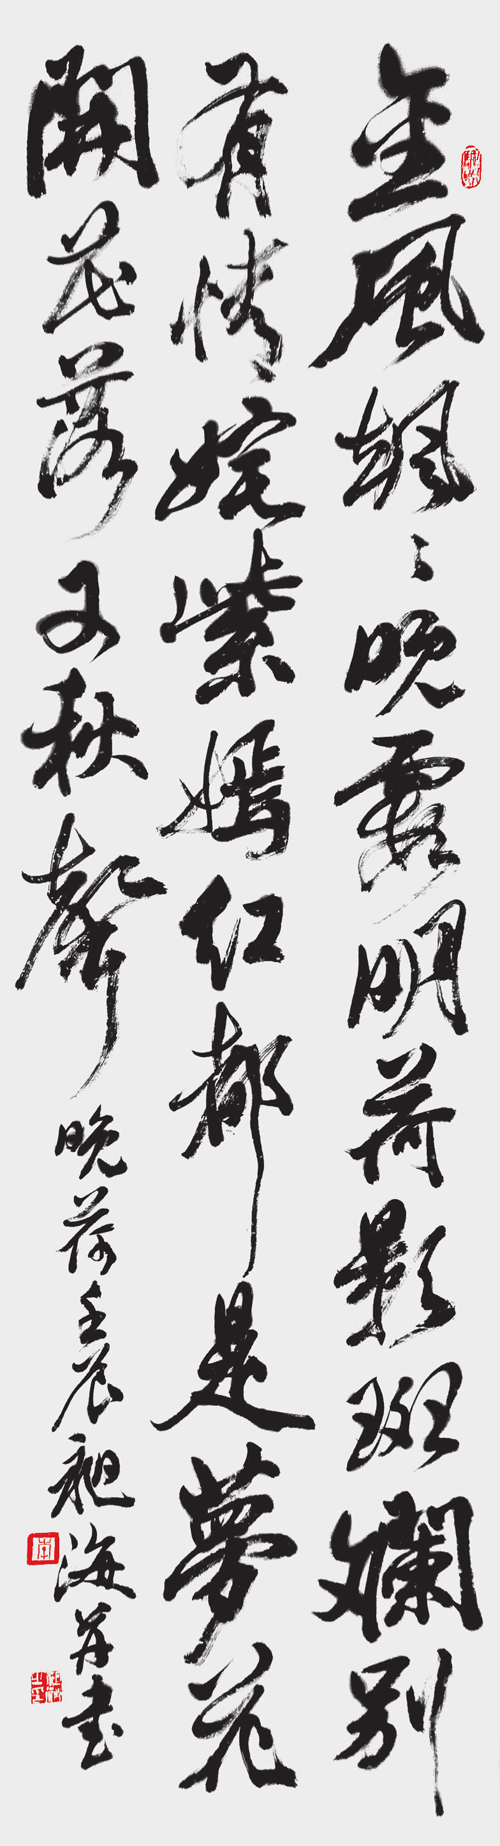 金風颯々晚霞明荷影斑斕別
有情姹紫嫣紅都是夢花
開花落又秋聲 晚荷壬辰昶海并書